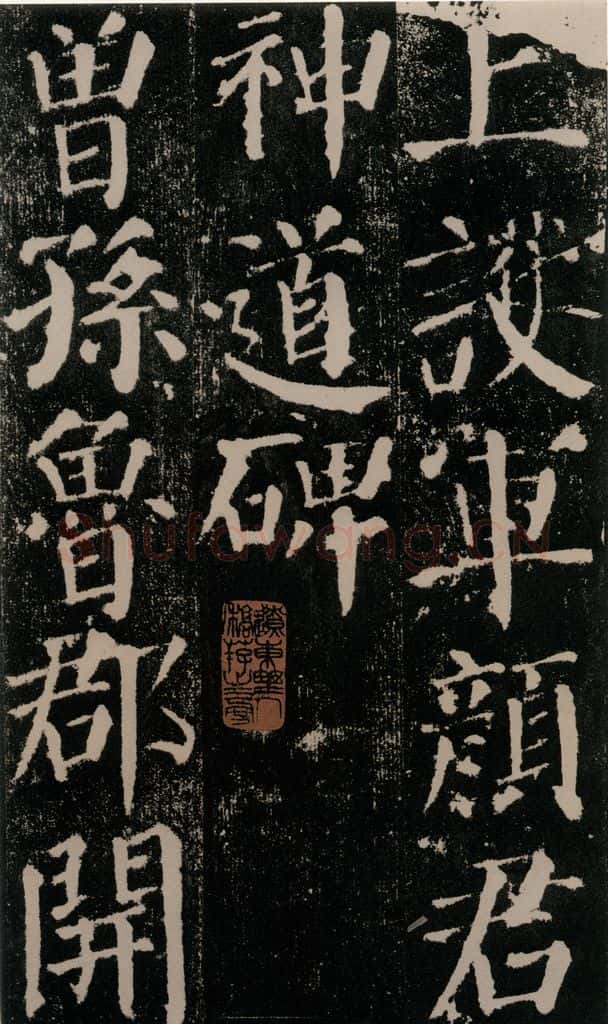 上護軍顏君
神道碑
曾孫魯郡開
Shufawang.CN